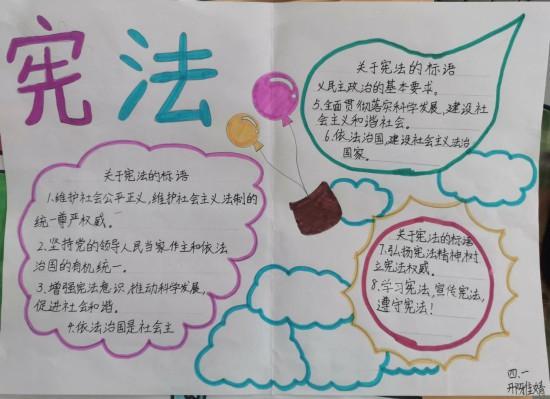 宪法
关于宪法的标语
1.维护社会公平正义,维护社会主义法制的
统一尊严权威。
2.坚持党的领导人民当家作主和依法
治国的有机统一。
3.增强宪法意识,推动科学发展,
促进社会和谐。
4.依法治国是社会主
关于宪法的标语
义民主政治的基本要求。
5.全面贯彻落实科学发展,建设社
会主义和谐社会。
6.依法治国,建设社会主义法治
国家。
关于宪法的标语
7.弘扬宪法精神,树
立宪法权威。
8.学习宪法,宣传宪法,
遵守宪法!
四.一